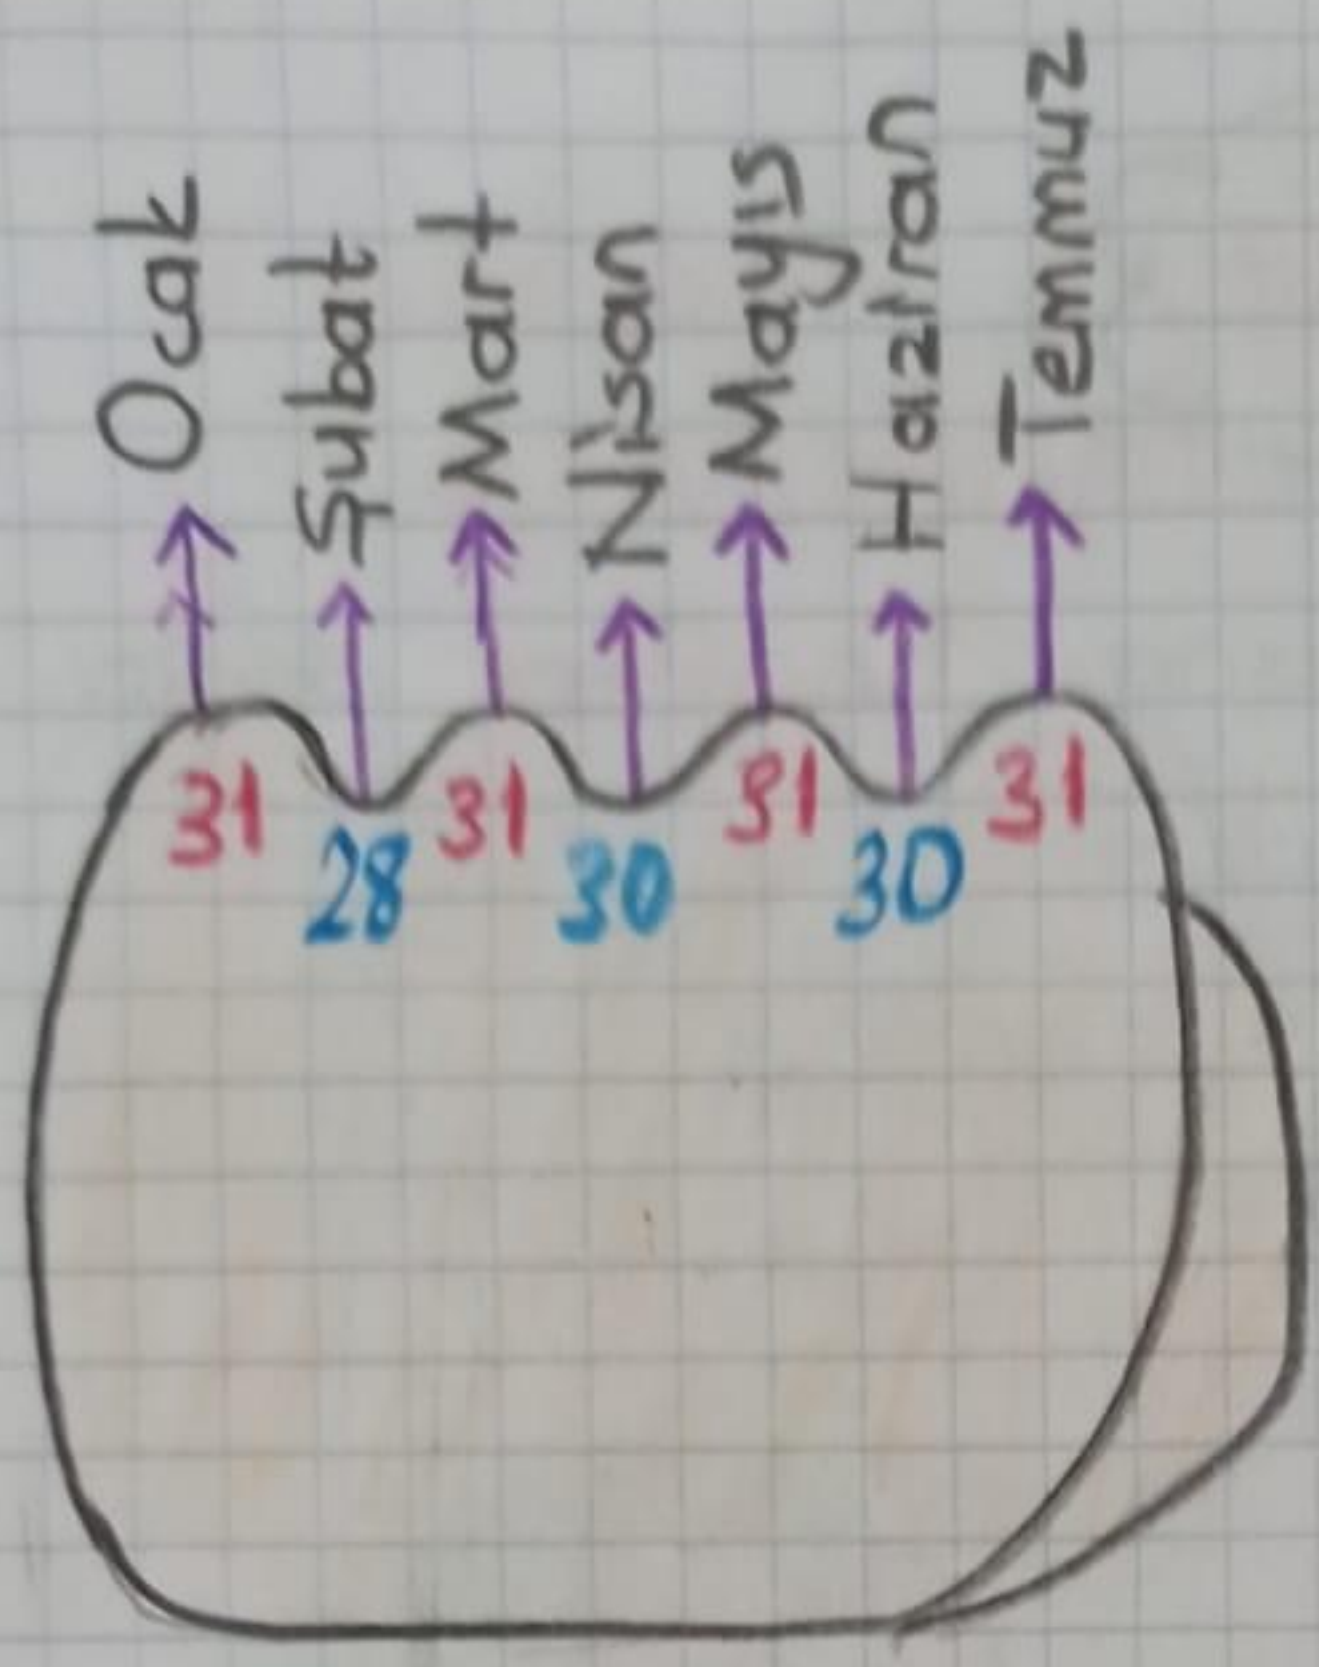 Ocak
Şubat
Mart
Nisan
Mayıs
Haziran
Temmuz
31
28
31
30
31
30
31